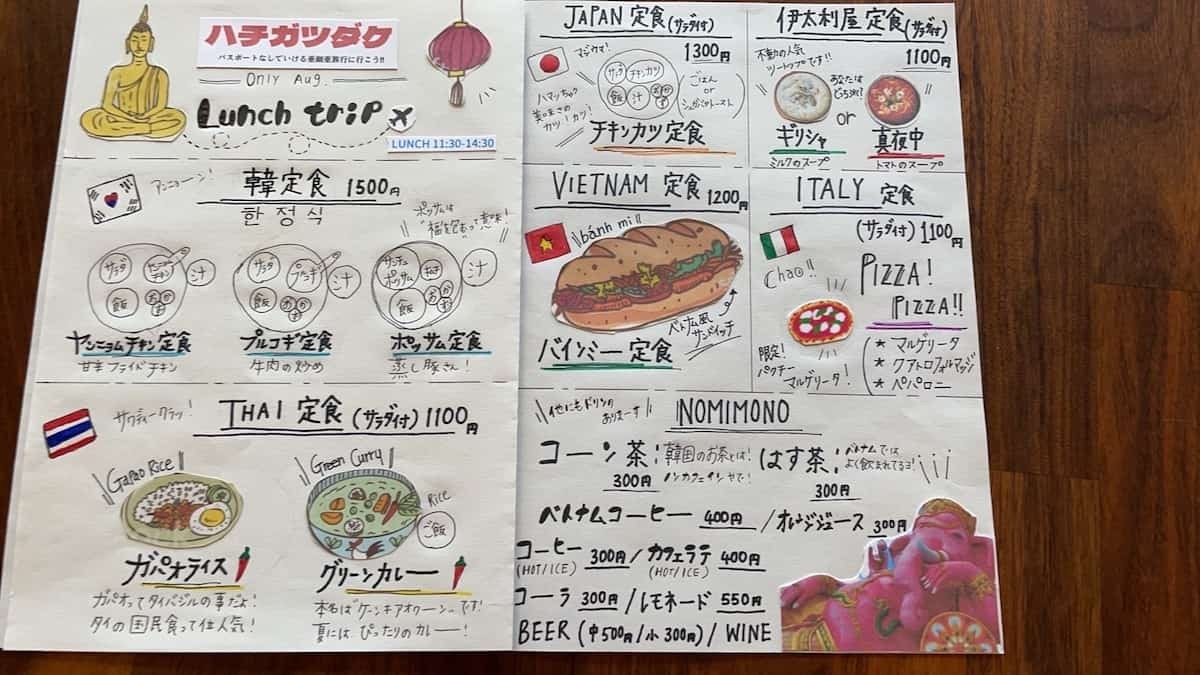 ハチガツダケ
パスポートなしでいける亜細亜旅行に行こう!!
Only Aug.
Lunch trip
LUNCH 11:30-14:30
アニョーン!
韓定食 1500円
한정식
ポッサムは
"福を包む"って意味!
サラダ
ヤンニョムチキン
飯
おかず
汁
サラダ
プルコギ
飯
おかず
汁
サンチュ
ポッサム
キムチ
飯
おかず
汁
ヤンニョムチキン定食
甘辛フライドチキン
プルコギ定食
牛肉の炒め
ポッサム定食
蒸し豚さん!
サワディークラッ!
THAI 定食 (サラダ付) 1100円
Gapao Rice
Green Curry
Rice
ご飯
ガパオライス
ガパオってタイバジルの事だよ!
タイの国民食って位人気!
グリーンカレー
本名は"ゲーンキアオワーン"です!
夏にはぴったりのカレー!
JAPAN 定食 (サラダ付)
1300円
マジウマ!
ハマッちゃう
美味さの
カツ!カツ!
サラダ
チキンカツ
飯
汁
ごはん
or
チキンカツ定食
伊太利屋定食 (サラダ付)
1100円
不動の人気
ツートップです!!
あなたは
どっち派?
or
ギリシャ
ミルクのスープ
真夜中
トマトのスープ
VIETNAM 定食 1200円
bánh mì
ベトナム風
サンドイッチ
バインミー定食
ITALY 定食
(サラダ付) 1100円
Chao!!
PIZZA!
PIZZA!!
限定!
パクチー
マルゲリータ!
* マルゲリータ
* クアトロフォルマッジ
* ペパロニ
他にもドリンク
ありまーす
NOMIMONO
コーン茶: 韓国のお茶とは!
ノンカフェインやで!
300円
はす茶: ベトナムでは
よく飲まれてるヨ!
300円
ベトナムコーヒー 400円 / オレンジジュース 300円
コーヒー 300円 / カフェラテ 400円
(HOT/ICE) (HOT/ICE)
コーラ 300円 / レモネード 550円
BEER (中500円/小300円) / WINE